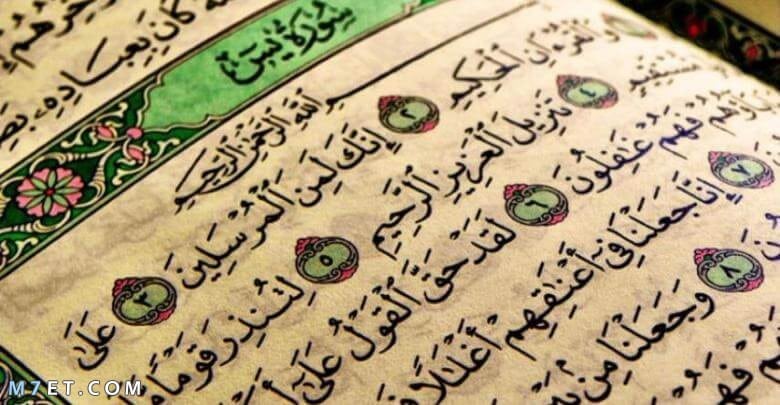 كَانَ بِعِبَادِهِۦ
سُورَةُ يسٓ
بِسْمِ ٱللَّهِ ٱلرَّحْمَٰنِ ٱلرَّحِيمِ
وَٱلْقُرْءَانِ ٱلْحَكِيمِ ٢ إِنَّكَ لَمِنَ ٱلْمُرْسَلِينَ ٣ عَلَىٰ
مُّسْتَقِيمٍ ٤ تَنزِيلَ ٱلْعَزِيزِ ٱلرَّحِيمِ ٥ لِتُنذِرَ قَوْمًا مَّآ
فَهُمْ غَٰفِلُونَ ٦ لَقَدْ حَقَّ ٱلْقَوْلُ عَلَىٰٓ
٧ إِنَّا جَعَلْنَا فِىٓ أَعْنَٰقِهِمْ أَغْلَٰلًا
٨ وَجَعَلْنَا مِنۢ
M7ET.COM